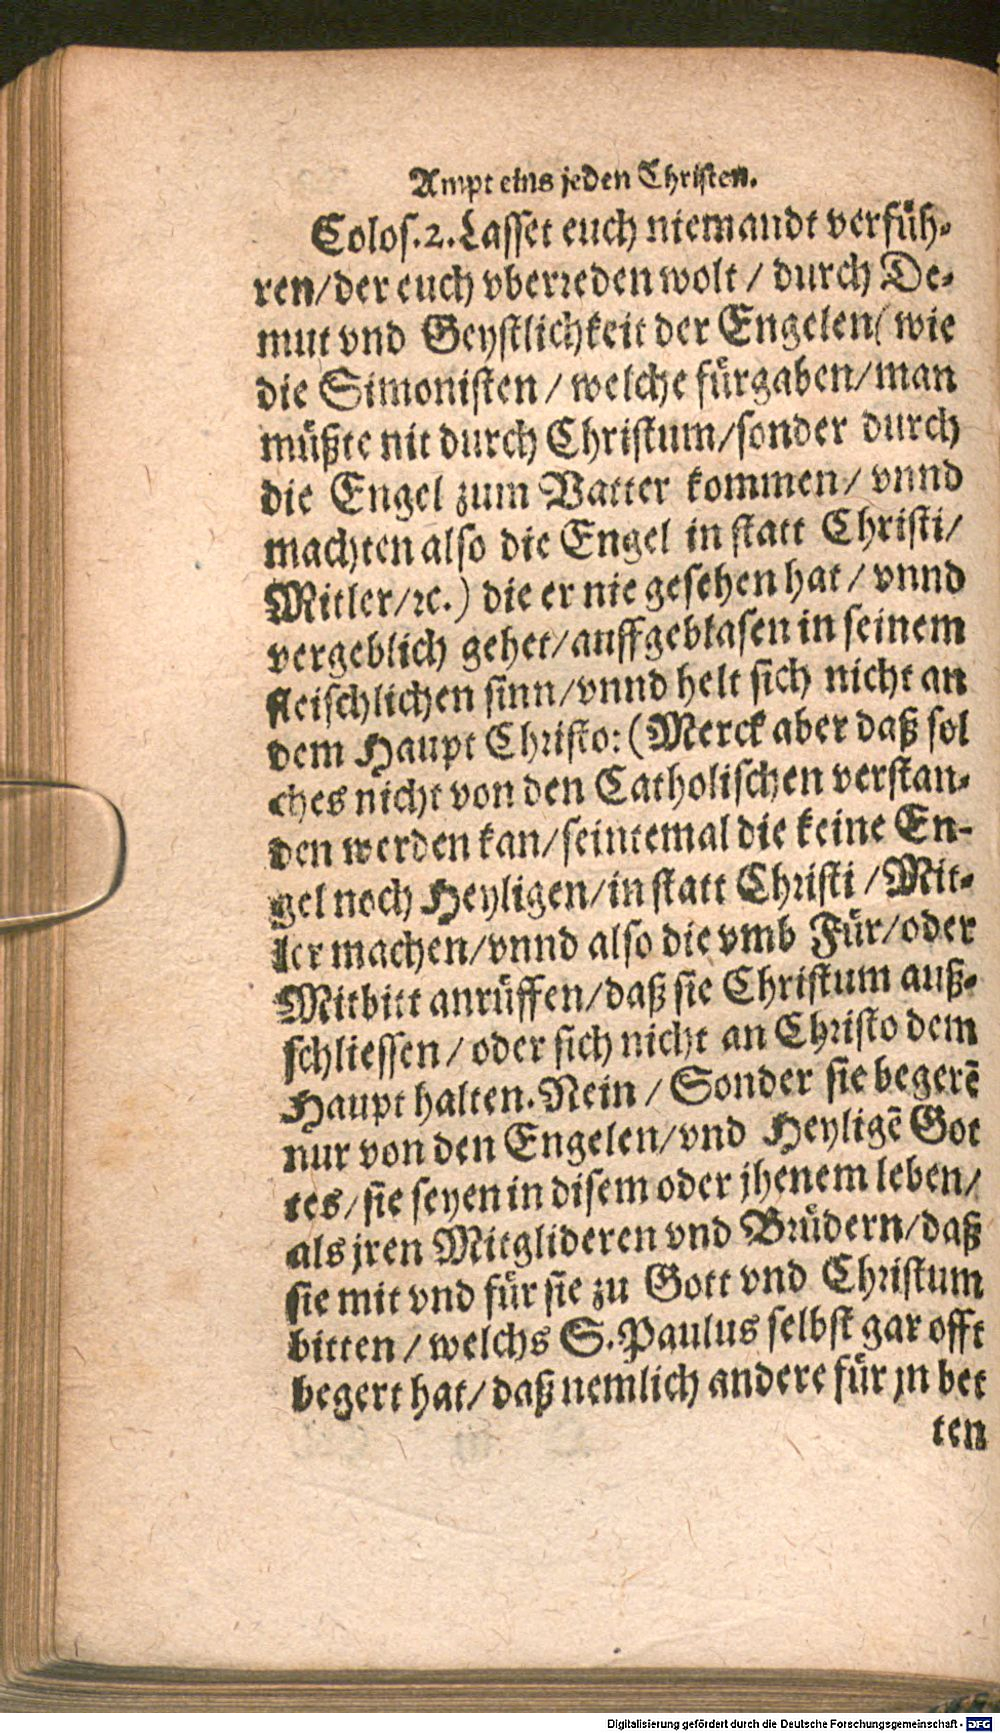 Ampt eins jeden Christen.
Colos.2. Lasset euch niemandt verfüh-
ren/der euch vberreden wolt / durch De-
mut vnd Geystlichkeit der Engelen( wie
die Simonisten / welche fürgaben/man
müßte nit durch Christum/sonder durch
die Engel zum Vatter kommen/ vnnd
machten also die Engel in statt Christi/
Mitler/ꝛc.) die er nie gesehen hat / vnnd
vergeblich gehet/auffgeblasen in seinem
fleischlichen sinn/vnnd helt sich nicht an
dem Haupt Christo: (Merck aber daß sol
ches nicht von den Catholischen verstan-
den werden kan/seintemal die keine En-
gel noch Heyligen/in statt Christi /Mit-
ler machen/vnnd also die vmb Für/oder
Mitbitt anrüffen/daß sie Christum auß-
schliessen / oder sich nicht an Christo dem
Haupt halten. Nein / Sonder sie begerē
nur von den Engelen/vnd Heyligē Got
tes/sie seyen in disem oder jhenem leben/
als jren Mitglideren vnd Brüdern/daß
sie mit vnd für sie zu Gott vnd Christum
bitten / welchs S. Paulus selbst gar offt
begert hat/daß nemlich andere für jn bet
ten
Digitalisierung gefördert durch die Deutsche Forschungsgemeinschaft - DFG